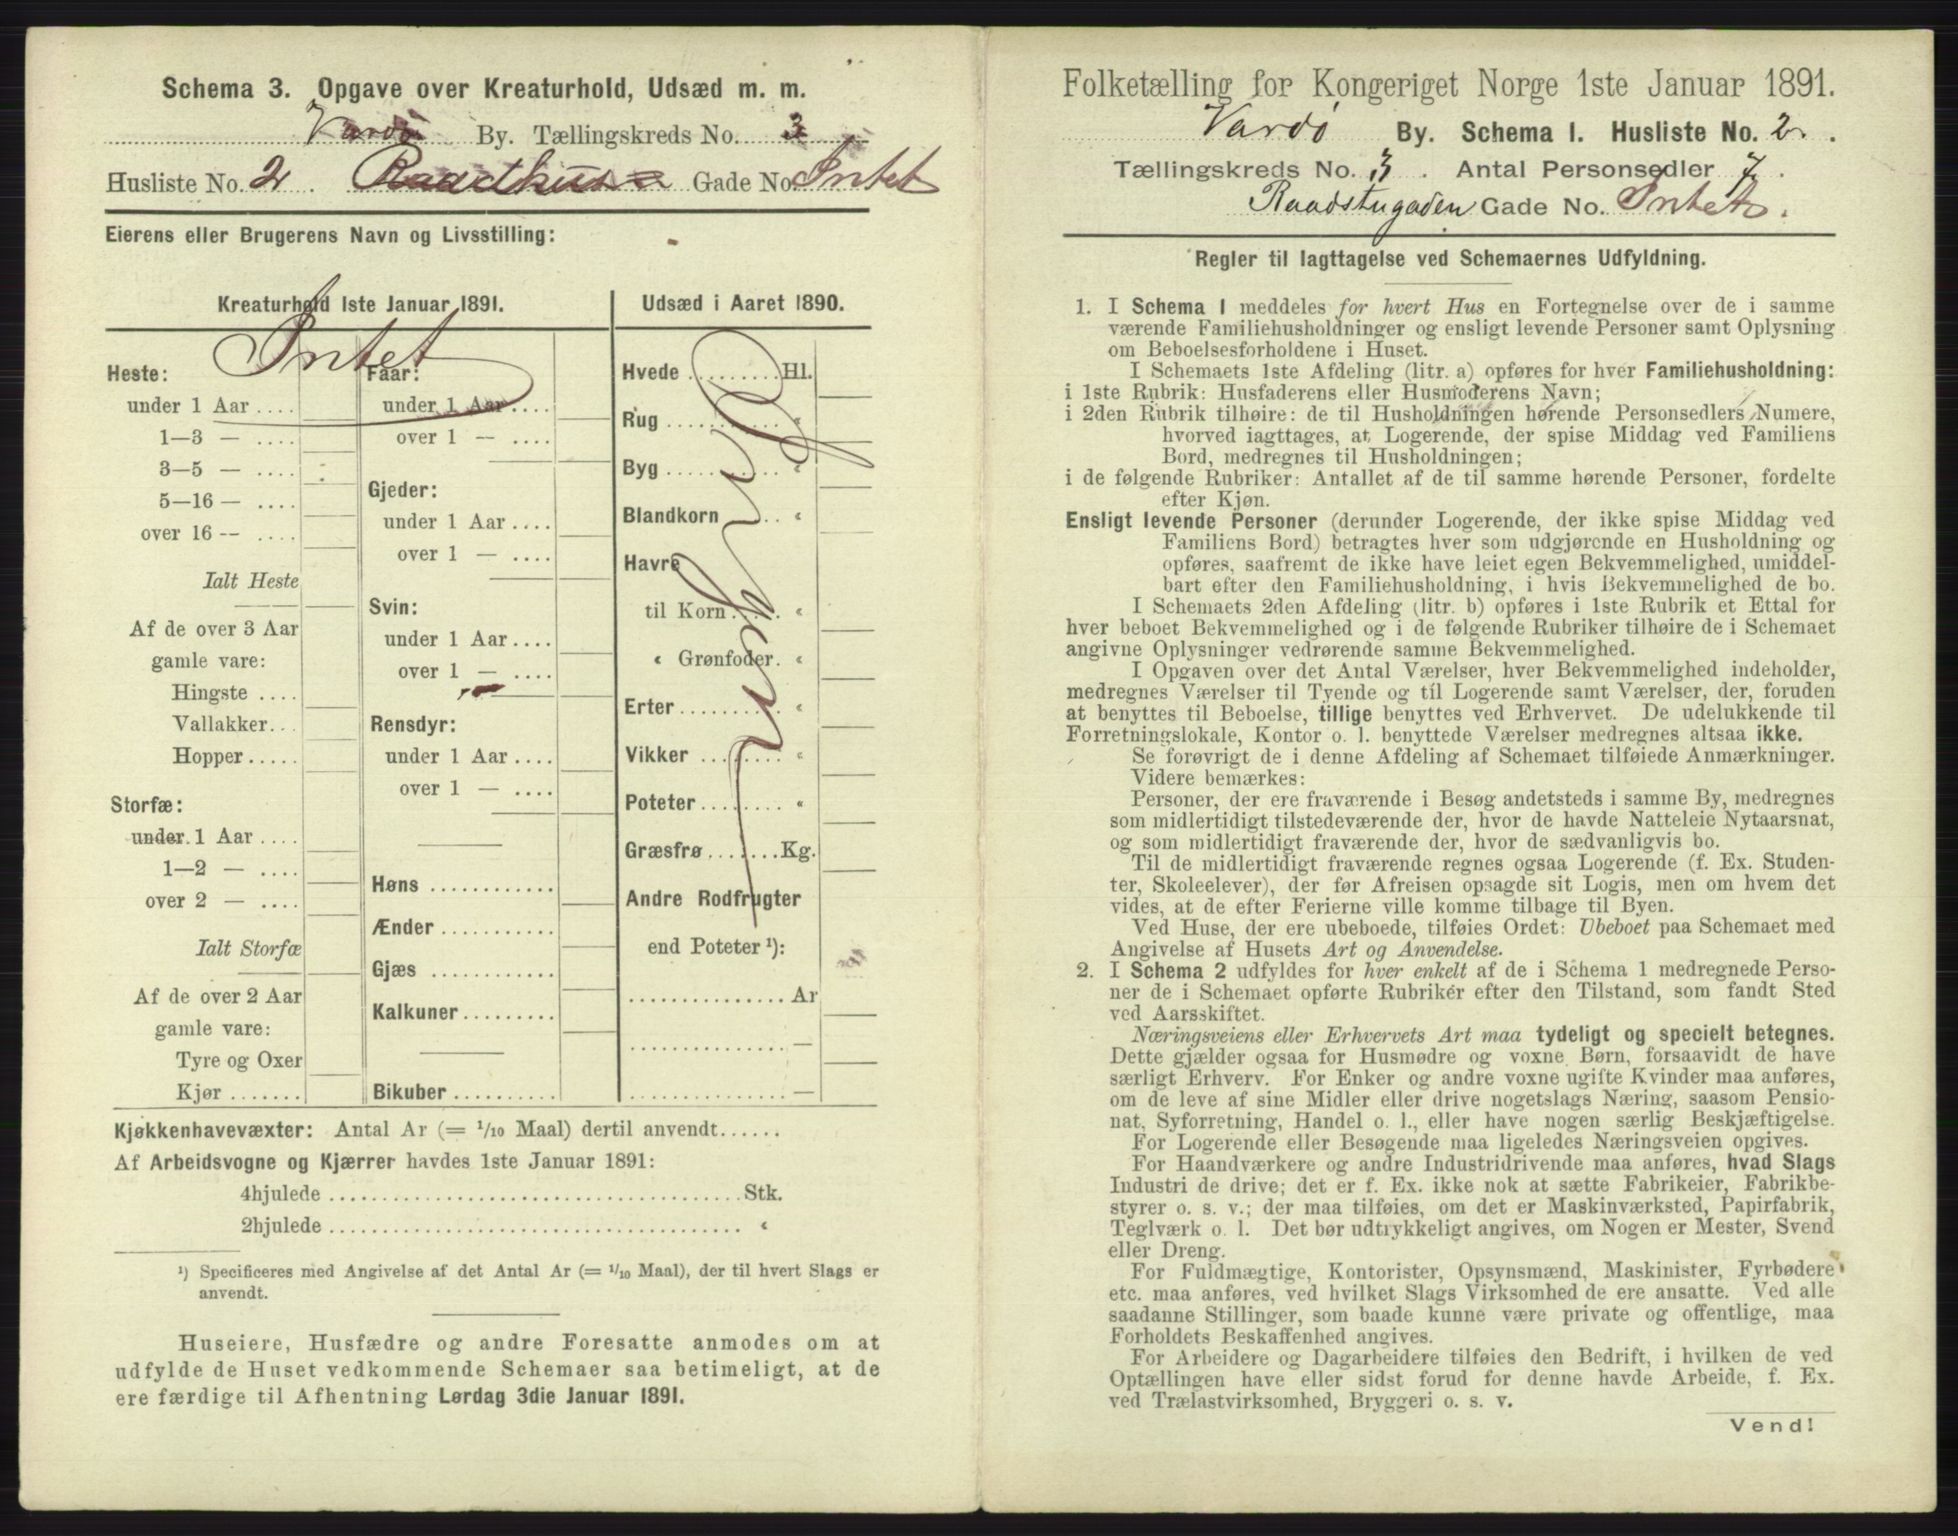 Schema 3. Opgave over Kreaturhold, Udsæd m. m.
Vardø By. Tællingskreds No. 3
Husliste No. 2. Gade No. Intet
Eierens eller Brugerens Navn og Livsstilling:
Kreaturhold 1ste Januar 1891.
Intet
Heste:
under 1 Aar ....
1—3 — ....
3—5 — ....
5—16 — ....
over 16 — ....
Ialt Heste
Af de over 3 Aar
gamle vare:
Hingste ....
Vallakker...
Hopper .....
Storfæ:
under 1 Aar ....
1—2 — ....
over 2 — ....
Ialt Storfæ
Af de over 2 Aar
gamle vare:
Tyre og Oxer
Kjør .......
Faar:
under 1 Aar ....
over 1 — ....
Gjeder:
under 1 Aar ....
over 1 — ....
Svin:
under 1 Aar ....
over 1 — ....
Rensdyr:
under 1 Aar ....
over 1 — ....
Høns ............
Ænder ...........
Gjæs ............
Kalkuner.........
Bikuber ..........
Udsæd i Aaret 1890.
Hvede .........Hl.
Rug ........... «
Byg ........... «
Blandkorn ... «
Havre
til Korn ..... «
« Grønfoder. «
Erter.......... «
Vikker ........ «
Poteter........ «
Græsfrø.......Kg.
Andre Rodfrugter
end Poteter ¹):
............... Ar
............... —
............... —
Kjøkkenhavevæxter: Antal Ar (= 1/10 Maal) dertil anvendt......
Af Arbeidsvogne og Kjærrer havdes 1ste Januar 1891:
4hjulede ...................................... Stk.
2hjulede ...................................... «
¹) Specificeres med Angivelse af det Antal Ar (= 1/10 Maal), der til hvert Slags er
anvendt.
Huseiere, Husfædre og andre Foresatte anmodes om at
udfylde de Huset vedkommende Schemaer saa betimeligt, at de
ere færdige til Afhentning Lørdag 3die Januar 1891.
Folketælling for Kongeriget Norge 1ste Januar 1891.
Vardø By. Schema I. Husliste No. 2.
Tællingskreds No. 3. Antal Personsedler 7.
Raadstugaden Gade No. Intet.
Regler til Iagttagelse ved Schemaernes Udfyldning.
1. I Schema I meddeles for hvert Hus en Fortegnelse over de i samme
værende Familiehusholdninger og ensligt levende Personer samt Oplysning
om Beboelsesforholdene i Huset.
I Schemaets 1ste Afdeling (litr. a) opføres for hver Familiehusholdning:
i 1ste Rubrik: Husfaderens eller Husmoderens Navn;
i 2den Rubrik tilhøire: de til Husholdningen hørende Personsedlers Numere,
hvorved iagttages, at Logerende, der spise Middag ved Familiens
Bord, medregnes til Husholdningen;
i de følgende Rubriker: Antallet af de til samme hørende Personer, fordelte
efter Kjøn.
Ensligt levende Personer (derunder Logerende, der ikke spise Middag ved
Familiens Bord) betragtes hver som udgjørende en Husholdning og
opføres, saafremt de ikke have leiet egen Bekvemmelighed, umiddel-
bart efter den Familiehusholdning, i hvis Bekvemmelighed de bo.
I Schemaets 2den Afdeling (litr. b) opføres i 1ste Rubrik et Ettal for
hver beboet Bekvemmelighed og i de følgende Rubriker tilhøire de i Schemaet
angivne Oplysninger vedrørende samme Bekvemmelighed.
I Opgaven over det Antal Værelser, hver Bekvemmelighed indeholder,
medregnes Værelser til Tyende og til Logerende samt Værelser, der, foruden
at benyttes til Beboelse, tillige benyttes ved Erhvervet. De udelukkende til
Forretningslokale, Kontor o. l. benyttede Værelser medregnes altsaa ikke.
Se forøvrigt de i denne Afdeling af Schemaet tilføiede Anmærkninger.
Videre bemærkes:
Personer, der ere fraværende i Besøg andetsteds i samme By, medregnes
som midlertidigt tilstedeværende der, hvor de havde Natteleie Nytaarsnat,
og som midlertidigt fraværende der, hvor de sædvanligvis bo.
Til de midlertidigt fraværende regnes ogsaa Logerende (f. Ex. Studen-
ter, Skoleelever), der før Afreisen opsagde sit Logis, men om hvem det
vides, at de efter Ferierne ville komme tilbage til Byen.
Ved Huse, der ere ubeboede, tilføies Ordet: Ubeboet paa Schemaet med
Angivelse af Husets Art og Anvendelse.
2. I Schema 2 udfyldes for hver enkelt af de i Schema 1 medregnede Perso-
ner de i Schemaet opførte Rubriker efter den Tilstand, som fandt Sted
ved Aarsskiftet.
Næringsveiens eller Erhvervets Art maa tydeligt og specielt betegnes.
Dette gjælder ogsaa for Husmødre og voxne Børn, forsaavidt de have
særligt Erhverv. For Enker og andre voxne ugifte Kvinder maa anføres,
om de leve af sine Midler eller drive nogetslags Næring, saasom Pensio-
nat, Syforretning, Handel o. l., eller have nogen særlig Beskjæftigelse.
For Logerende eller Besøgende maa ligeledes Næringsveien opgives.
For Haandværkere og andre Industridrivende maa anføres, hvad Slags
Industri de drive; det er f. Ex. ikke nok at sætte Fabrikeier, Fabrikbe-
styrer o. s. v.; der maa tilføies, om det er Maskinværksted, Papirfabrik,
Teglværk o. l. Det bør udtrykkeligt angives, om Nogen er Mester, Svend
eller Dreng.
For Fuldmægtige, Kontorister, Opsynsmænd, Maskinister, Fyrbødere
etc. maa anføres, ved hvilket Slags Virksomhed de ere ansatte. Ved alle
saadanne Stillinger, som baade kunne være private og offentlige, maa
Forholdets Beskaffenhed angives.
For Arbeidere og Dagarbeidere tilføies den Bedrift, i hvilken de ved
Optællingen have eller sidst forud for denne havde Arbeide, f. Ex.
ved Trælastvirksomhed, Bryggeri o. s. v.
Vend!